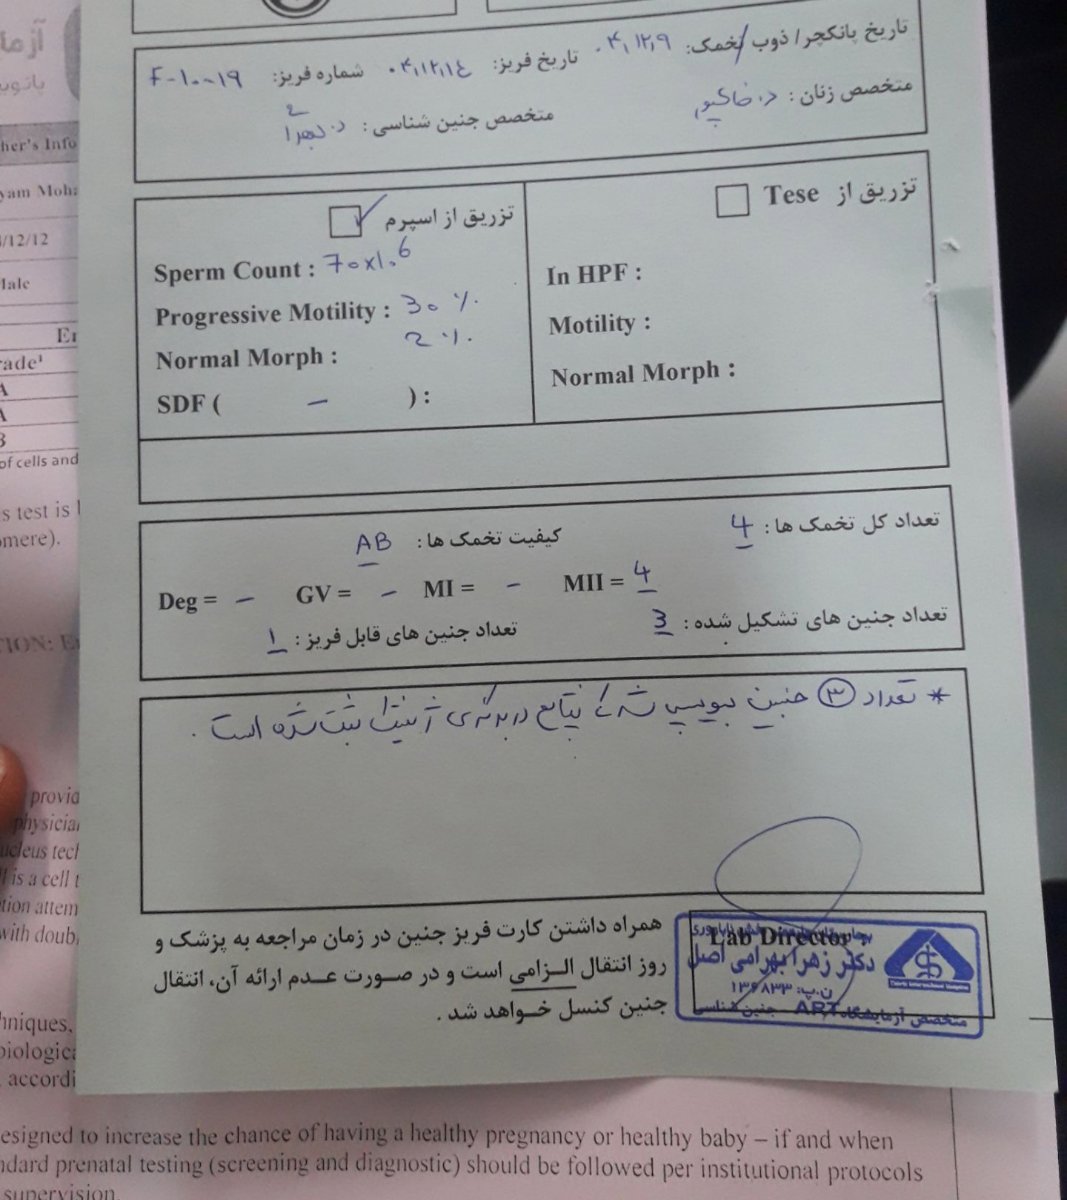 تاریخ پانکچر/ ذوب تخمک: ۰۴,۱۲,۹ تاریخ فریز: ۰۴,۱۲,۱۴ شماره فریز: F-۱۰۰۱۹
متخصص زنان: د. خاکپور متخصص جنین شناسی: د.
تزریق از Tese
In HPF :
Motility :
Normal Morph :
تزریق از اسپرم ✓
Sperm Count : 70x1.6
Progressive Motility : 30 %
Normal Morph : 2 %
SDF ( – ) :
تعداد کل تخمک ها: 4 کیفیت تخمک ها: AB
Deg = – GV = – MI = – MII = 4
تعداد جنین های تشکیل شده: 3 تعداد جنین های قابل فریز: ۱
* تعداد ۳ جنین بیوپسی شد که نتایج در برگه ی ژنتیک ثبت شده است.
همراه داشتن کارت فریز جنین در زمان مراجعه به پزشک و
روز انتقال الـزامی است و در صـورت عـدم ارائه آن، انتقال
جنین کنسل خواهد شد.
Lab Director :
دکتر زهرا بهرامی اصل
ن.پ: ۱۳۶۸۳۳
متخصص آزمایشگاه ART جنین شناسی
آزما
her's Info
yam Moha
/12/12
Male
rade¹
A
A
B
of cells and
s test is
omere).
TION: E
provid
physicia
ucleus tech
is a cell
tion attem
with doub
hniques,
biologica
accordi
esigned to increase the chance of having a healthy pregnancy or healthy baby – if and when
ndard prenatal testing (screening and diagnostic) should be followed per institutional protocols
supervision.